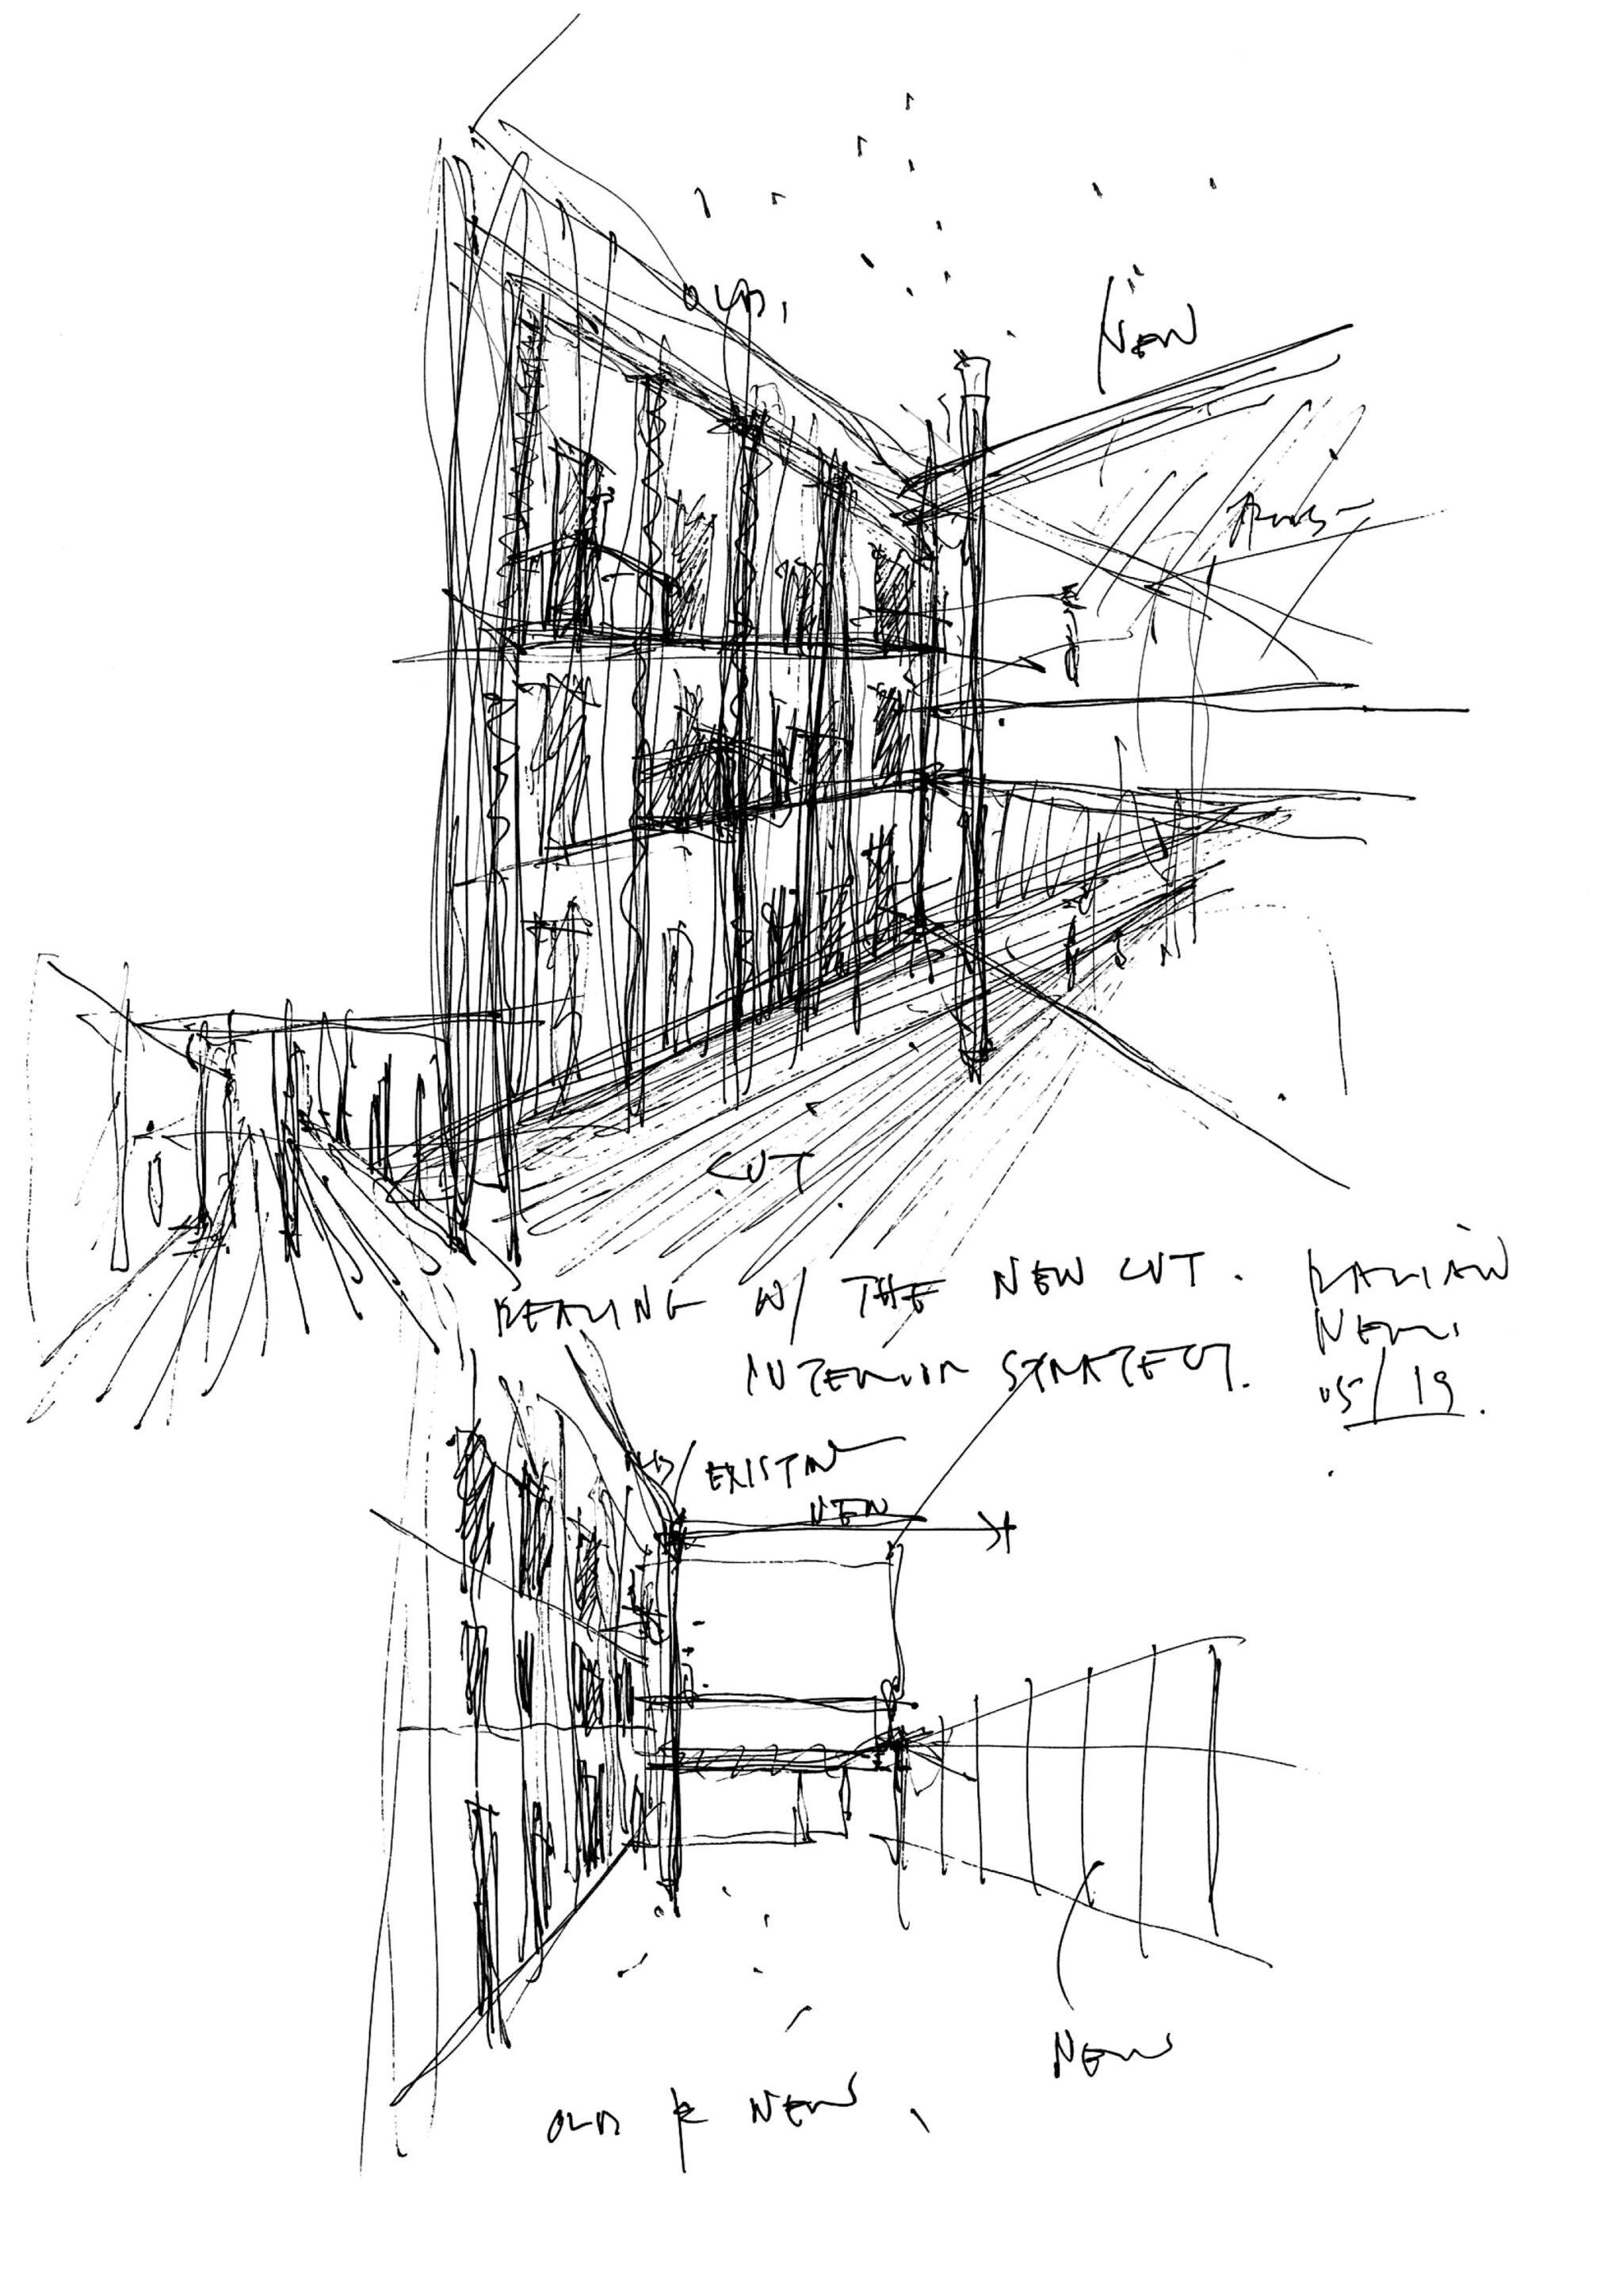 OLD,
NEW
CUT
DEALING W/ THE NEW CUT.
INTERIOR STRATEGY.
DALIAN
NEWS
05/19.
OLD/EXISTING
NEW
NEW
OLD & NEW,